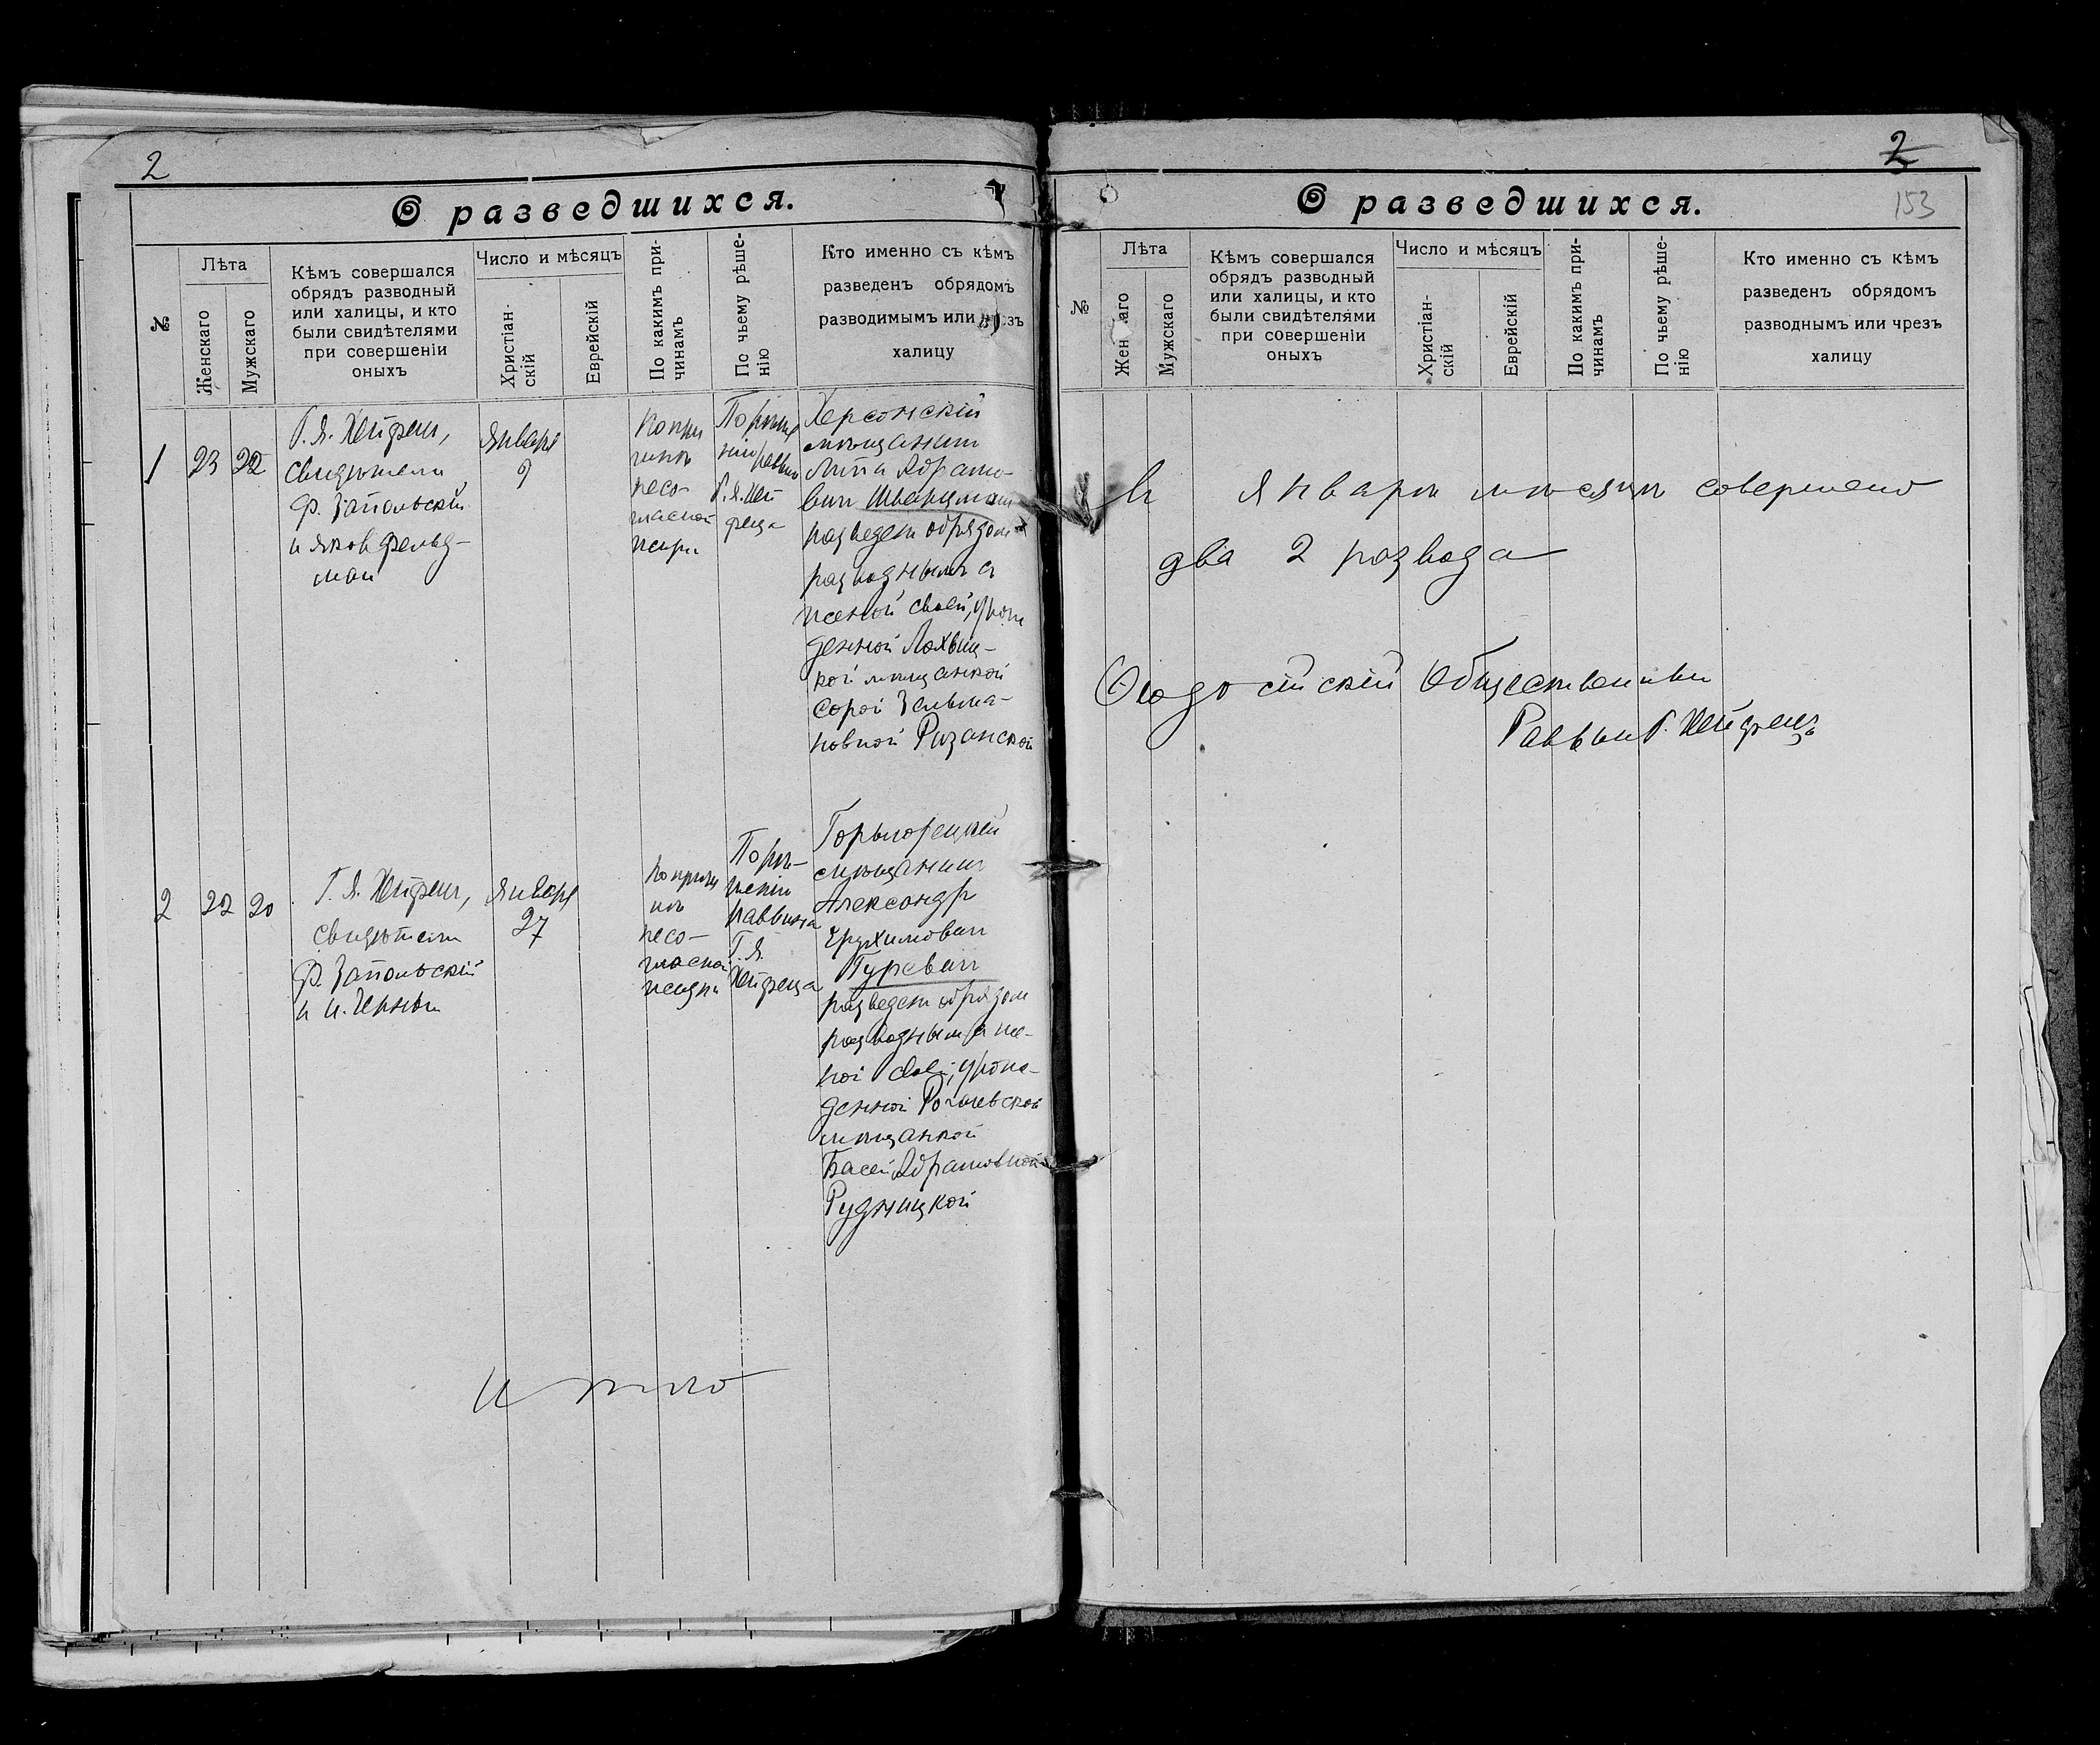 2
О разведшихся.
№
Лѣта
Женскаго
Мужскаго
Кѣмъ совершался
обрядъ разводный
или халицы, и кто
были свидѣтелями
при совершеніи
оныхъ
Число и мѣсяцъ
Христіан-
скій
Еврейскій
По какимъ при-
чинамъ
По чьему рѣше-
нію
Кто именно съ кѣмъ
разведенъ обрядомъ
разводимымъ или зъ
халицу
1
23
22
Г. Я. Хейфец,
свидѣтели
Ф. Запольскій
и Яков Фельд-
ман
Января
9
По при
чинѣ
несо-
гласной
жизни
По рѣше
нію раввина
Г. Я. Хей
феца
Херсонскій
мѣщанин
Липа Абрамо-
вич Шварцман
разведен обрядом
разводнымъ с
женой своей, урож
денной Лохвиц-
кой мѣщанкой
Сорой Зельма-
новной Ризанской
2
22
20
Г. Я. Хейфец,
свидѣтели
Ф. Запольскій
и И. Черный
Января
27
По причи
нѣ
несо-
гласной
жизни
По рѣ-
шенію
раввина
Г. Я.
Хейфеца
Горыгорецкій
мѣщанин
Александр
Ерухимович
Гуревич
разведен обрядом
разводным с же-
ной своей, урож-
денной Рогачевской
мѣщанкой
Басей Абрамовной
Рудницкой
Итого
2
О разведшихся.
153
№
Лѣта
Жен аго
Мужскаго
Кѣмъ совершался
обрядъ разводный
или халицы, и кто
были свидѣтелями
при совершеніи
оныхъ
Число и мѣсяцъ
Христіан-
скій
Еврейскій
По какимъ при-
чинамъ
По чьему рѣше-
нію
Кто именно съ кѣмъ
разведенъ обрядомъ
разводнымъ или чрезъ
халицу
В Январѣ мѣсяцѣ совершено
два 2 развода
Ѳеодосійскій Общественный
Раввин Г. Хейфецъ